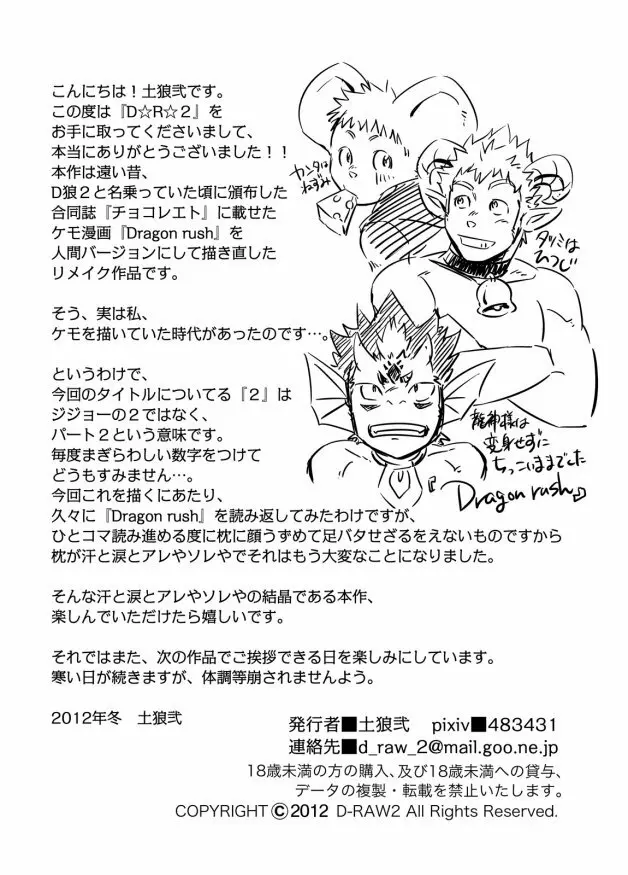 こんにちは！土狼弐です。
この度は『D☆R☆２』を
お手に取ってくださいまして、
本当にありがとうございました！！
本作は遠い昔、
D狼２と名乗っていた頃に頒布した
合同誌『チョコレエト』に載せた
ケモ漫画『Dragon rush』を
人間バージョンにして描き直した
リメイク作品です。
そう、実は私、
ケモを描いていた時代があったのです…。
というわけで、
今回のタイトルについてる『２』は
ジジョーの２ではなく、
パート２という意味です。
毎度まぎらわしい数字をつけて
どうもすみません…。
今回これを描くにあたり、
久々に『Dragon rush』を読み返してみたわけですが、
ひとコマ読み進める度に枕に顔うずめて足バタせざるをえないものですから
枕が汗と涙とアレやソレやでそれはもう大変なことになりました。
そんな汗と涙とアレやソレやの結晶である本作、
楽しんでいただけたら嬉しいです。
それではまた、次の作品でご挨拶できる日を楽しみにしています。
寒い日が続きますが、体調等崩されませんよう。
2012年冬　土狼弐
カンタは
ねずみ
タツミは
ひつじ
龍神様は
変身せずに
ちっこいままでした
『Dragon rush』
発行者■土狼弐　pixiv■483431
連絡先■d_raw_2@mail.goo.ne.jp
18歳未満の方の購入、及び18歳未満への貸与、
データの複製・転載を禁止いたします。
COPYRIGHT ©2012 D-RAW2 All Rights Reserved.